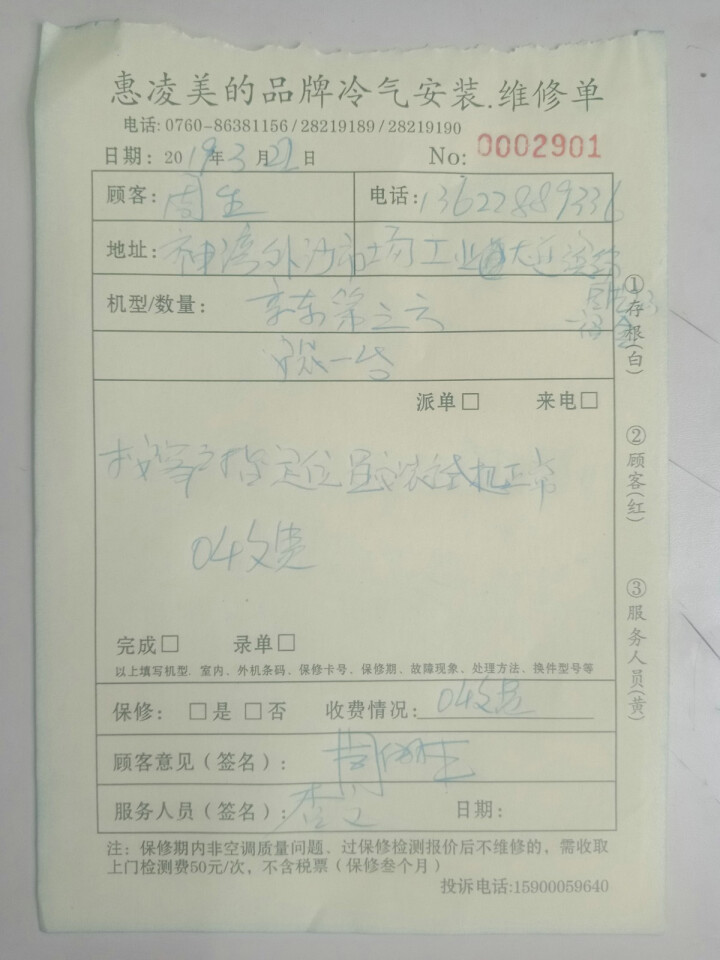 惠凌美的品牌冷气安装.维修单
电话: 0760-86381156/28219189/28219190
日期: 2019年3月22日 No: 0002901
顾客: 周生 电话: 13622889336
地址: 神湾外沙市场工业大道
机型/数量: 京东第之六
安装一台
派单□ 来电□
指定位置安装试机正常
0收费
完成□ 录单□
以上填写机型. 室内、外机条码、保修卡号、保修期、故障现象、处理方法、换件型号等
保修: □是 □否 收费情况: 0收费
顾客意见(签名):
服务人员(签名): 李 日期:
注: 保修期内非空调质量问题、过保修检测报价后不维修的, 需收取
上门检测费50元/次, 不含税票(保修叁个月)
投诉电话:15900059640
①存根(白)
②顾客(红)
③服务人员(黄)